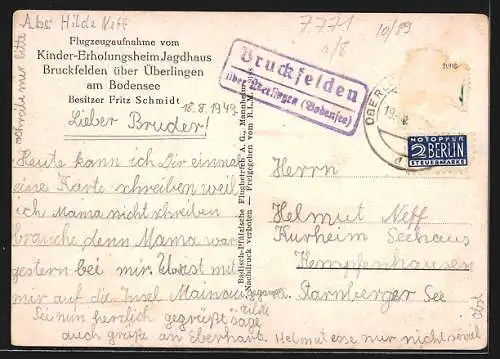 Abs: Hilde Neff
7.771
a/8
10/89
Flugzeugaufnahme vom
Kinder-Erholungsheim Jagdhaus
Bruckfelden über Überlingen
am Bodensee
Besitzer Fritz Schmidt
18.8.1949
Bruckfelden
über Überlingen (Bodensee)
NOTOPFER
2 BERLIN
STEUERMARKE
schreibe mir bitte
Lieber Bruder!
Heute kann ich Dir einmal
eine Karte schreiben weil
ich Mama nicht schreiben
brauche denn Mama war
gestern bei mir.
mir auf die Insel Mainau gegangen
Sei nun herzlich gegrüßt
auch grüße an Eberhart. Helmut esse nur nicht soviel
Obst
Badisch-Pfälzische Flugbetrieb A. G., Mannheim
Nachdruck verboten Freigegeben vom R.L.M.
Herrn
Helmut Neff
Kurheim Seehaus
Kempfenhausen
Starnberger See